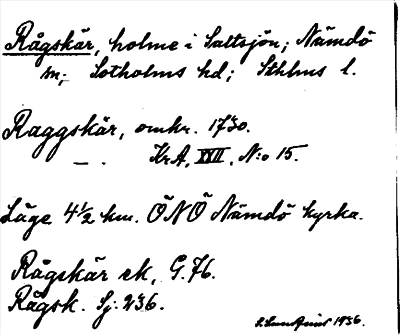 Rågskär, holme i Saltsjön; Nämdö
sn; Sotholms hd; Sthlms l.
Raggskär, omkr. 1730.
— . KrA, XVII, N:o 15.
Läge 4½ km. ÖNÖ Nämdö kyrka.
Rågskär ek, G.76.
Rågsk. Sj: 236.
1936.